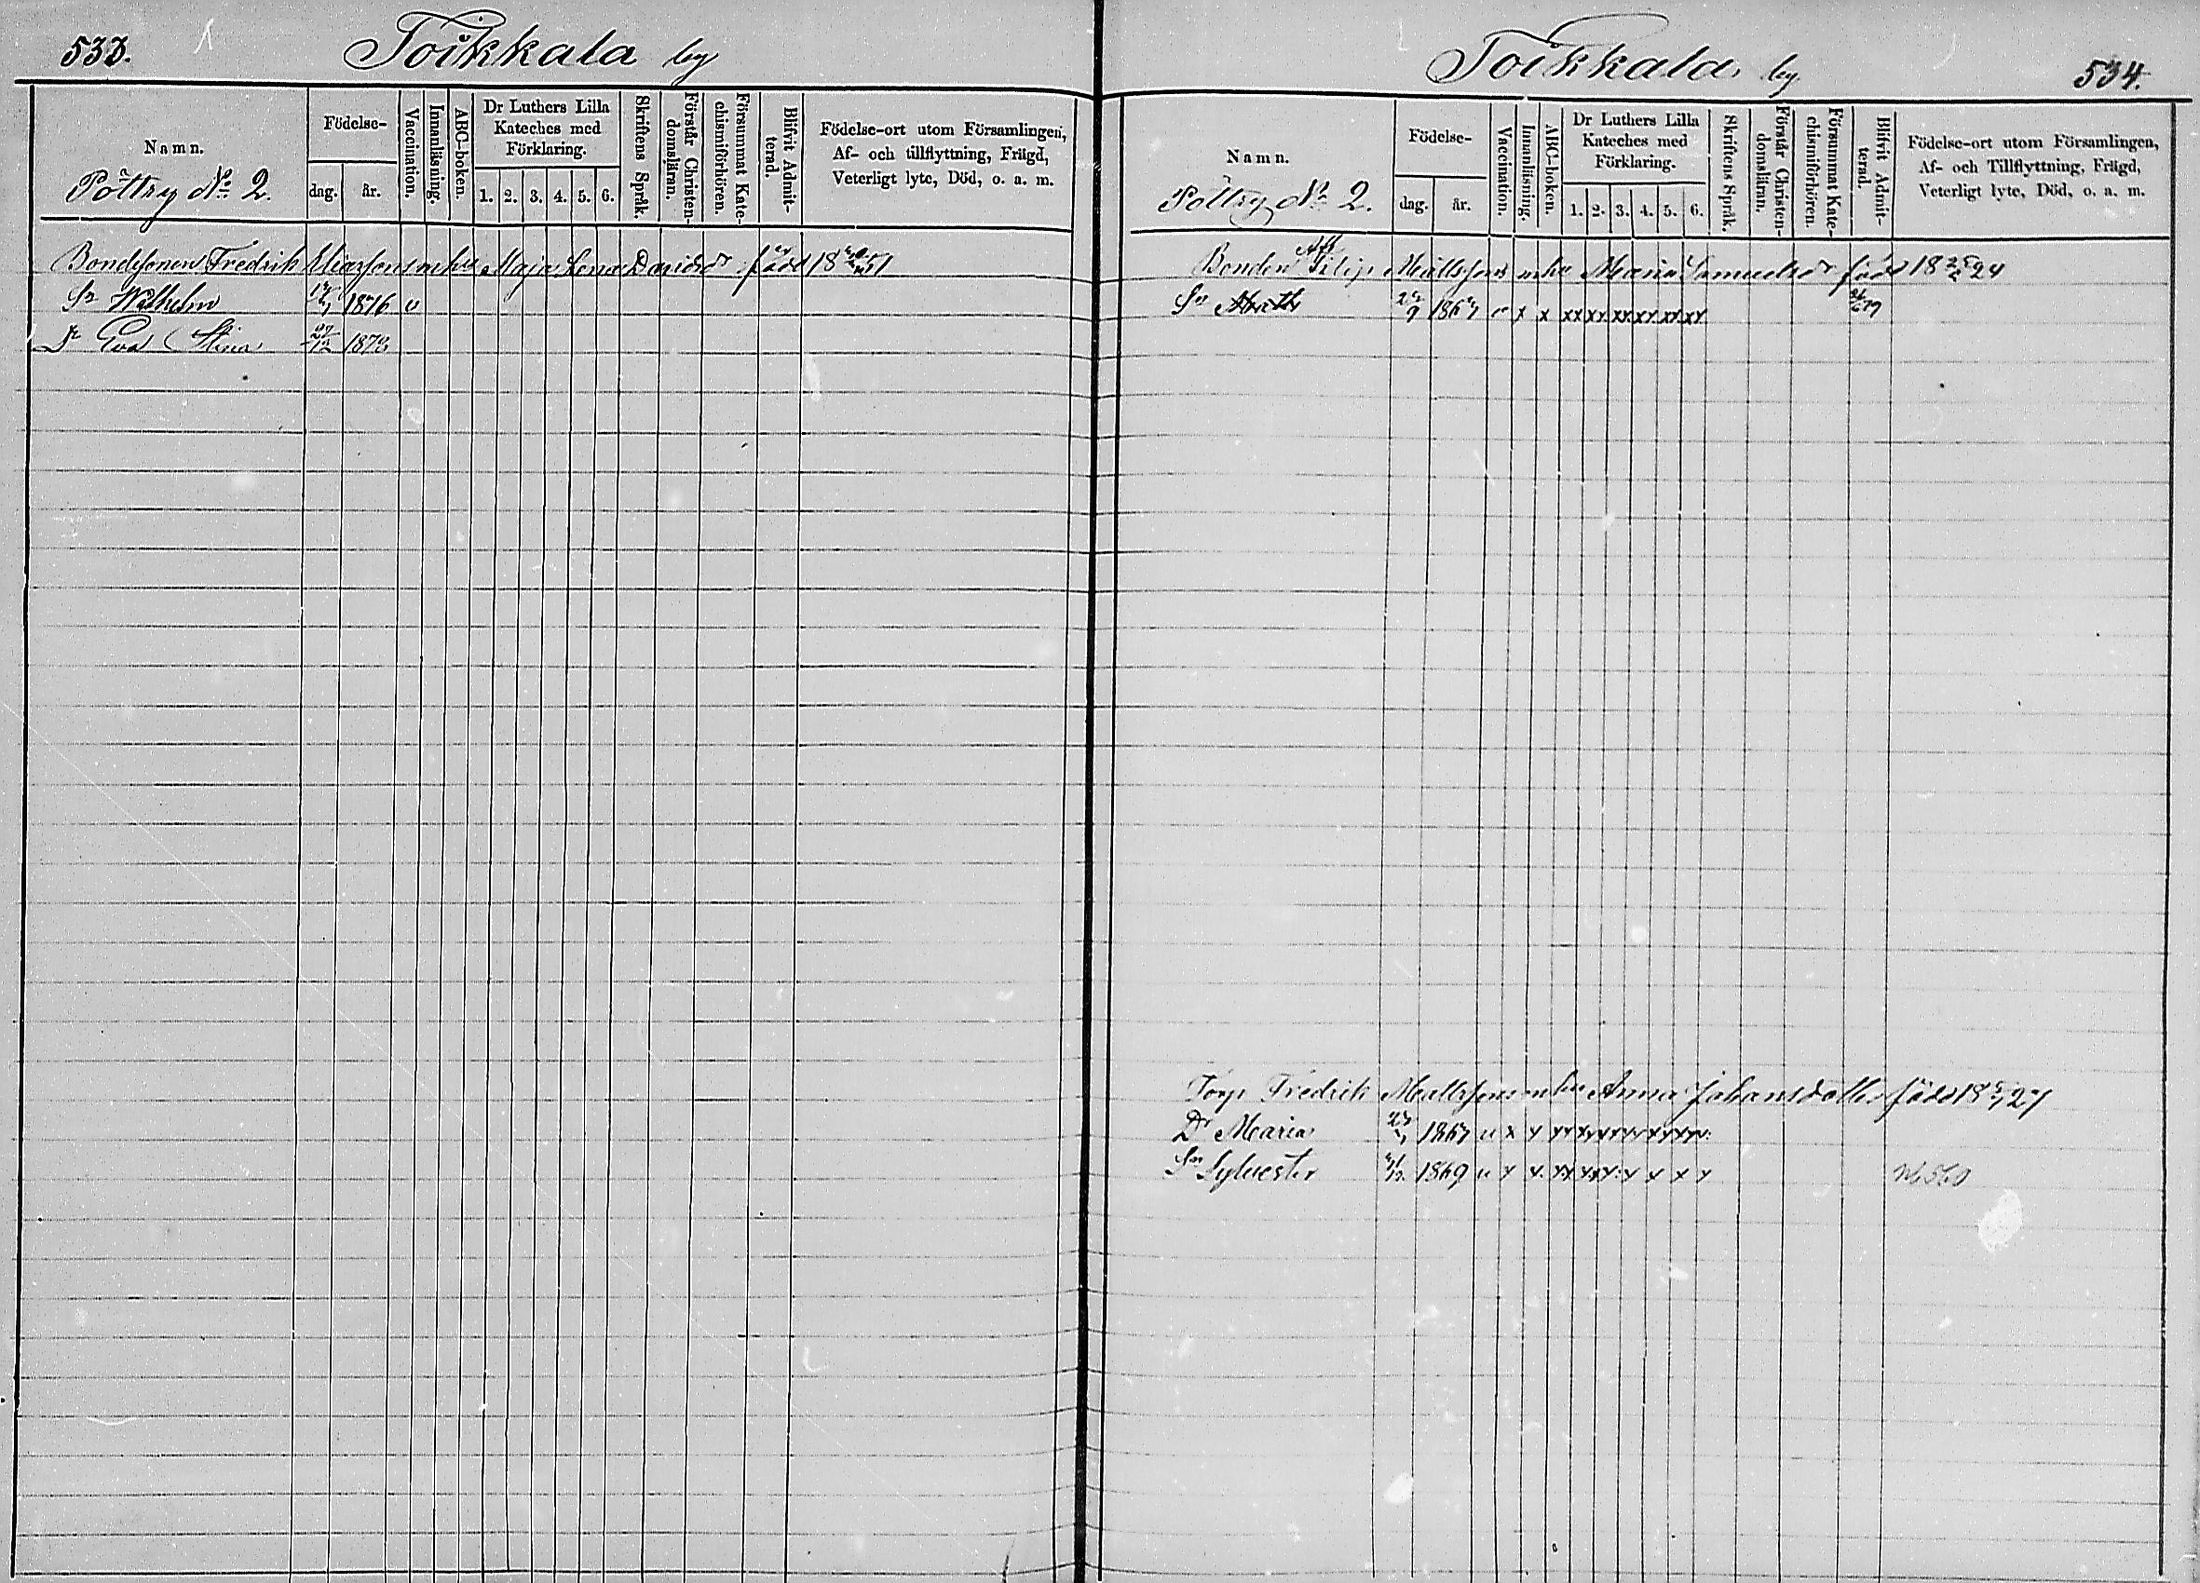 533.
Toikkala by
Namn.
Pöttry No 2.
Födelse-
dag.
år.
Vaccination.
Innanläsning.
ABC-boken.
Dr Luthers Lilla Kateches med Förklaring.
1. 2. 3. 4. 5. 6.
Skriftens Språk.
Förstår Christen-domsläran.
Försummat Kate-chismiförhören.
Blifvit Admit-terad.
Födelse-ort utom Församlingen,
Af- och tillflyttning, Frägd,
Veterligt lyte, Död, o. a. m.
Bondesonen Fredrik Eliazsons m hu Maja Lena Davidsdr född 18 51
Sn Wilhelm 1876 v
Dr Eva Stina 1878
Toikkala by
534.
Namn.
Pöttry No 2.
Födelse-
dag.
år.
Vaccination.
Innanläsning.
ABC-boken.
Dr Luthers Lilla Kateches med Förklaring.
1. 2. 3. 4. 5. 6.
Skriftens Språk.
Förstår Christen-domsläran.
Försummat Kate-chismiförhören.
Blifvit Admit-terad.
Födelse-ort utom Församlingen,
Af- och Tillflyttning, Frägd,
Veterligt lyte, Död, o. a. m.
Bonden Filip Mattssons m hu Maria Samuelsdr född 18 24
Sn Math 1867 v x x xx xx xx xx xx xx
Torp Fredrik Mattssons m hu Anna Johansdotter född 18 27
Dr Maria 1867
Sn Sylvester 1869